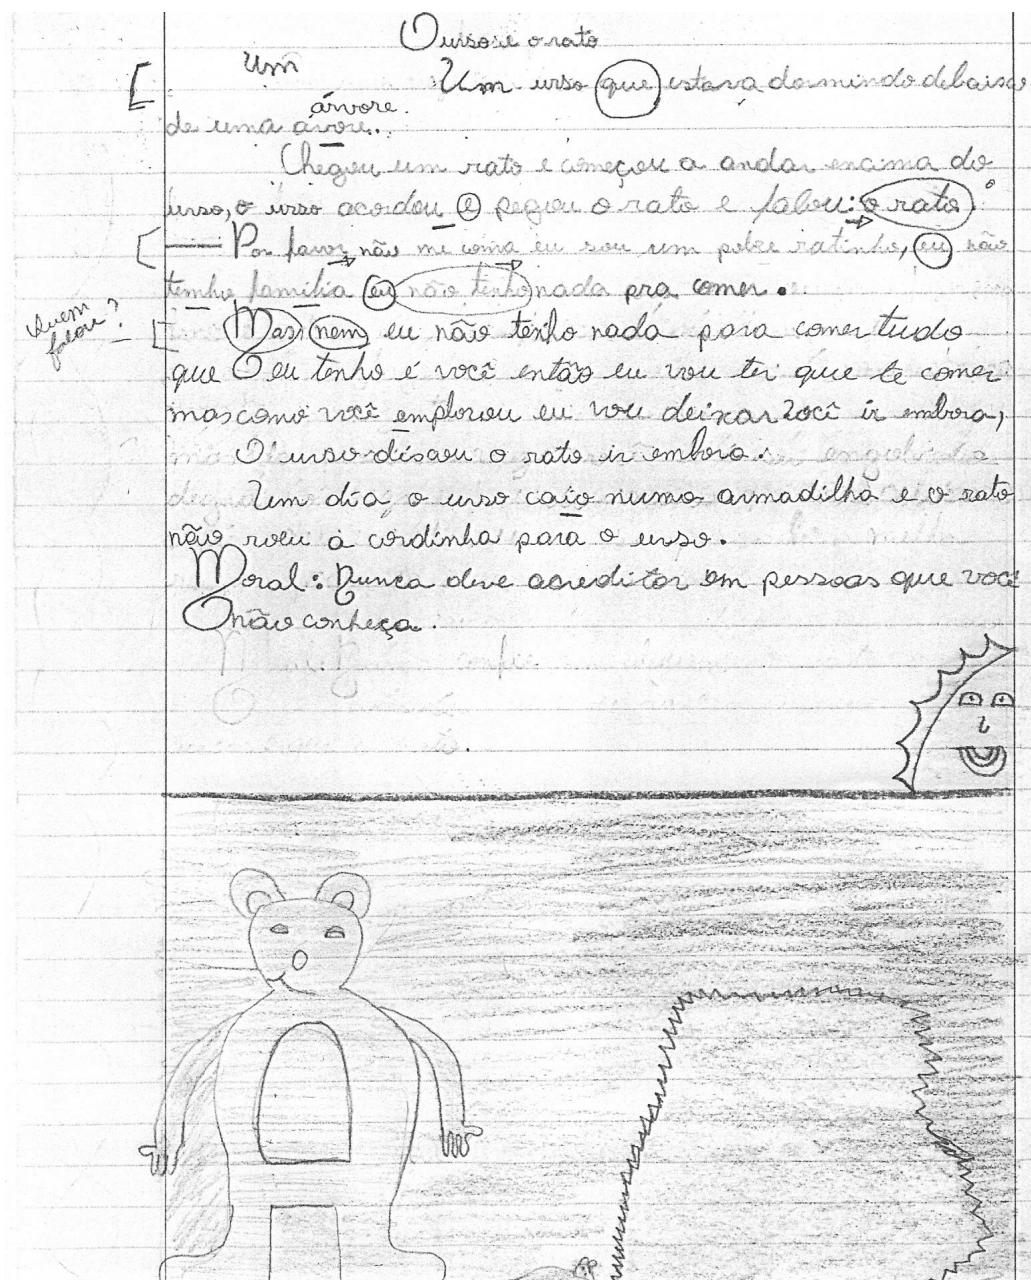 O urso e o rato
Um
Um urso que estava dormindo debaixo
árvore.
de uma ávore.
Chegou um rato e começou a andar encima do
urso, o urso acordou e pegou o rato e falou: o rato
— Por favor não me coma eu sou um pobre ratinho, eu não
tenho família eu não tenho nada pra comer.
Quem
falou?
Mas nem eu não tenho nada para comer tudo
que eu tenho é você então eu vou ter que te comer
mas como você emplorou eu vou deixar você ir embora,
O urso disaou o rato ir embora.
Um dia, o urso caio numa armadilha e o rato
não roeu a cordinha para o urso.
Moral: Nunca deve acreditar em pessoas que você
não conheça.